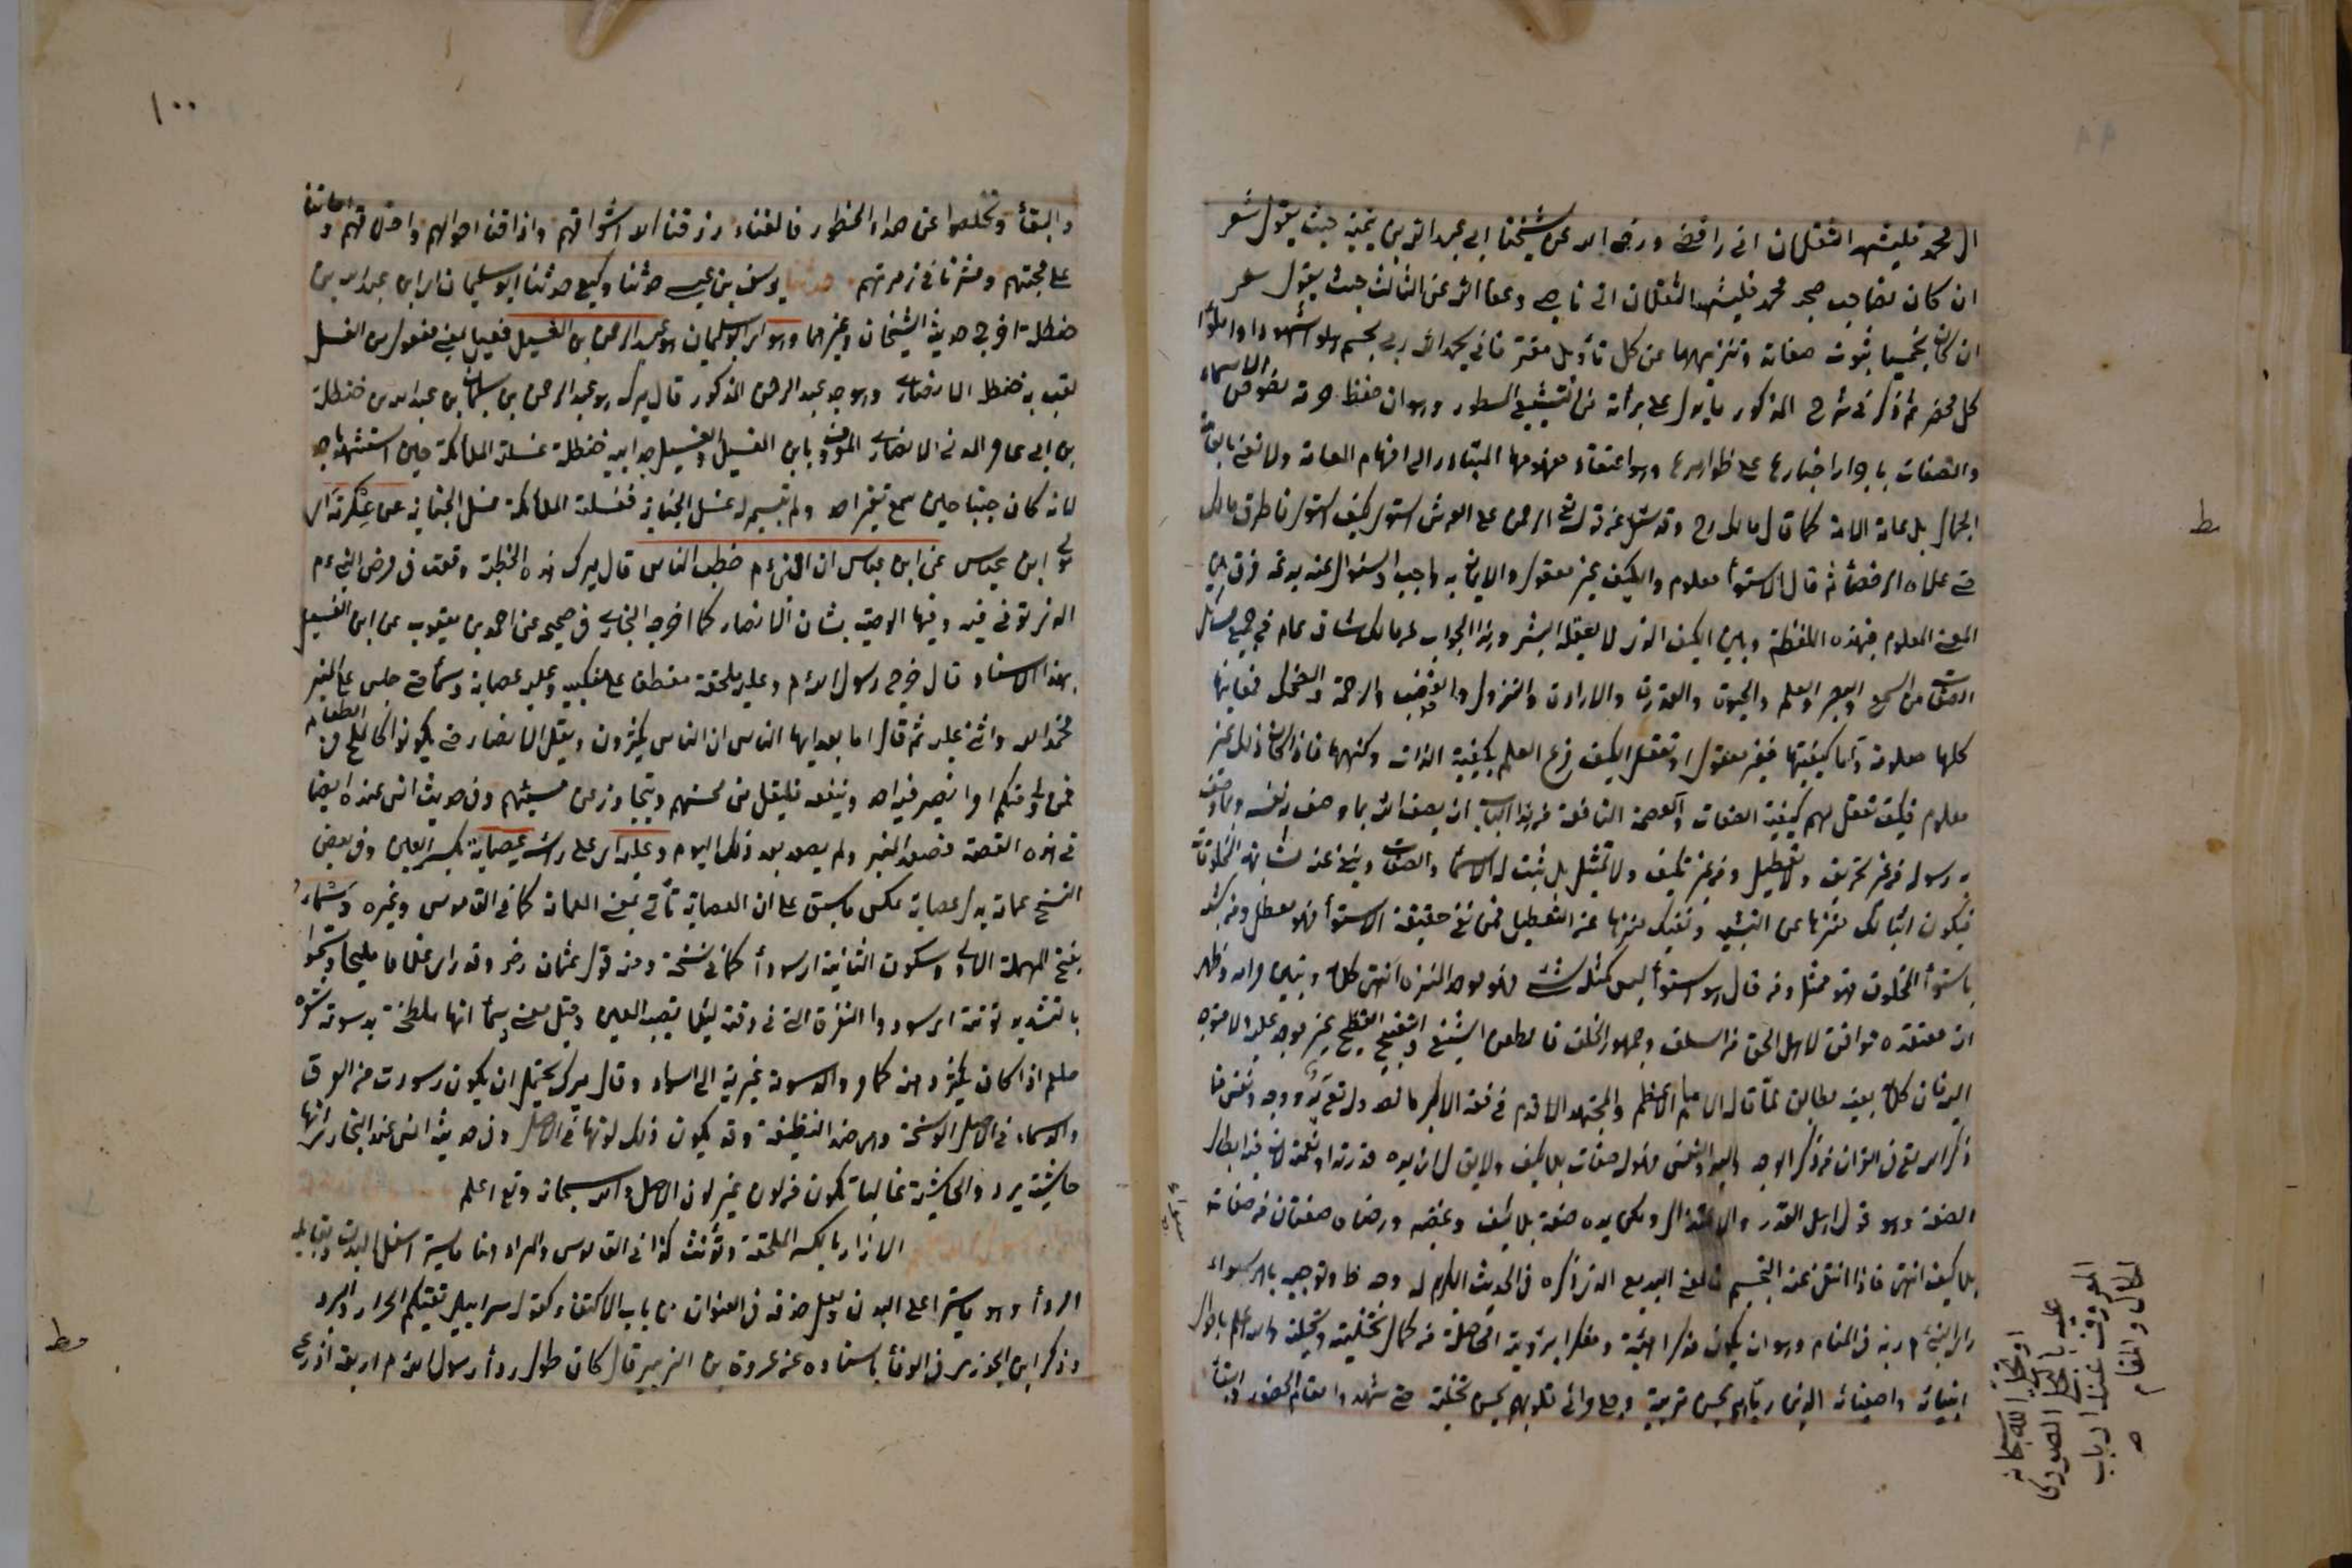 ال محمد فليشهد الثقلان اني رافضي ورضي الله عن شيخنا ابي عبد الله بن تيمية حيث يقول شعر
ان كان نصا حب صحب محمد فليشهد الثقلان اني ناصبي وعفا الله عن الثالث حيث يقول شعر
ان كان تجسيما ثبوت صفاته وتنزيهها عن كل تأويل مفتر فاني بحمد الله ربي مجسم هلموا شهودا واملؤا
كل محضر ثم ذكر في شرح المذكور ما يدل على برأته من التشنيع المسطور وهو ان حفظ حرمة نصوص الاسماء
والصفات باجرا اخبارها على ظواهرها وهو اعتقاد مفهومها المتبادر الى افهام العامة ولا نعني بالعامة
الجهال بل عامة الامة كما قال مالك رح وقد سئل عن قوله تع الرحمن على العرش استوى كيف استوى فاطرق مالك
حتى علاه الرحضأ ثم قال الاستوأ معلوم والكيف غير معقول والايمان به واجب والسؤال عنه بدعة فرق بين
المعنى المعلوم من هذه اللفظة وبين الكيف الذي لا يعقله البشر وهذا الجواب من مالك شاف عام في جميع مسائل
الصفات من السمع والبصر والعلم والحيوة والقدرة والارادة والنزول والغضب والرحمة والضحك فمعانيها
كلها معلومة واما كيفيتها فغير معقول اذ تعقل الكيف فرع العلم بكيفية الذات وكنهها فاذا كان ذلك غير
معلوم فكيف تعقل لهم كيفية الصفات والعصمة النافعة من هذا الباب ان يصف الله بما وصف به نفسه وبما وصف
به رسوله من غير تحريف ولا تعطيل ومن غير تكييف ولا تمثيل بل يثبت له الاسمأ والصفات وينفى عنه مشابهة المخلوقات
فيكون اثباتك منزها عن التشبيه ونفيك منزها عن التعطيل فمن نفى حقيقة الاستوأ فهو معطل ومن شبهه
باستوأ المخلوق فهو ممثل ومن قال هو استوأ ليس كمثله شئ فهو الموحد المنزه انتهى كلامه وتبين مرامه وظهر
ان معتقده موافق لاهل الحق من السلف وجمهور الخلف فالطعن الشنيع والتقبيح الفظيع غير موجه عليه ولا متوجه
اليه فان كلامه بعينه مطابق لما قاله الامام الاعظم والمجتهد الاقدم في فقه الاكبر ما نصه وله تع يد ووجه ونفس فما
ذكر الله تع في القران من ذكر الوجه واليد والنفس فهو له صفات بلا كيف ولا يقال ان يده قدرته او نعمته لان فيه ابطال
الصفة وهو قول اهل القدر والاعتزال ولكن يده صفته بلا كيف وغضبه ورضاه صفتان من صفاته
بلا كيف انتهى فاذا انتفى عنه التجسيم فالمعنى البديع الذي ذكره في الحديث الكريم له وجه ظ وتوجيه باهر سواء
رأى النبي م ربه في المنام وهو ان يكون مذكرا لهيئة ومفكرا برؤية الحاصلة من كمال تخليته وتحليته والله اعلم باحوال
انبيائه واصفيائه الذين رباهم بحسن تربيته وجلى مرائي قلوبهم بحسن تجليته حتى شهدوا مقام الحضور والبقأ
سواء
او تجلى الله سبحانه
عليه بالتجلي الصوري
المعروف عند ارباب
الحال والمقام
صح
ط
١٠٠
والبقأ وتخلصوا عن صداء المحظور فالفناء رزقنا الله اشواقهم واذاقنا احوالهم واخلاقهم واماتنا
على محبتهم وحشرنا في زمرتهم حدثنا يوسف بن عيسى حدثنا وكيع حدثنا ابو سليمان اي ابن عبد الله بن
حنظلة اخرج حديثه الشيخان وغيرهما وهو اي ابو سليمان هو عبد الرحمن بن الغسيل فعيل بمعنى مفعول من الغسل
لقب به حنظلة الانصاري وهو جد عبد الرحمن المذكور قال ميرك هو عبد الرحمن بن سليمان بن عبد الله بن حنظلة
بن ابي عامر المدني الانصاري المعروف بابن الغسيل والغسيل جد ابيه حنظلة غسلته الملائكة حين استشهد باحد
لانه كان جنبا حين سمع نفير احد ولم يتيسر له غسل الجنابة فغسلته الملائكة غسل الجنابة عن عكرمة اي
مولى ابن عباس عن ابن عباس ان النبي م خطب الناس قال ميرك هذه الخطبة وقعت في مرض النبي م
الذي توفي فيه وفيها الوصية بشان الانصار كما اخرجه البخاري في صحيحه عن احمد بن يعقوب عن ابن الغسيل
بهذا الاسناد قال خرج رسول الله م وعليه ملحفة متعطفا على منكبيه وعليه عصابة دسمأ حتى جلس على المنبر
فحمد الله واثنى عليه ثم قال اما بعد ايها الناس ان الناس يكثرون ويقل الانصار حتى يكونوا كالملح في الطعام
فمن ولي منكم امرا يضر فيه احدا وينفعه فليقبل من محسنهم ويتجاوز عن مسيئهم وفي حديث انس عنده ايضا
في هذه القصة فصعد المنبر ولم يصعد بعد ذلك اليوم وعليه اي على رأسه عصابة بكسر العين وفي بعض
النسخ عمامة بدل عصابة عكس ما سبق على ان العصابة تأتي بمعنى العمامة كما في القاموس وغيره دسماء
بفتح المهملة الاولى وسكون الثانية اي سودأ كما في نسخة ومنه قول عثمان رض وقد راى غلاما مليحا دسموا
بالتشديد نونته اي سودوا النقرة التي في ذقنه ليلا تصيبه العين وقيل معنى دسمأ انها ملطخة بدسومة شعره
صلعم اذا كان يكثر دهنه كما مر والدسومة غيرته الى السواد وقال ميرك يحتمل ان يكون اسودت من العرق
والدسماء في الاصل الوسخة وهي ضد النظيفة وقد يكون ذلك لونها في الاصل وفي حديث انس عند البخاري انها
حاشية برد والحاشية غالبا تكون من لون غير لون الاصل والله سبحانه وتع اعلم
الازار بالكسر الملحفة ويؤنث كذا في القاموس والمراد هنا ما يستر اسفل البدن ويقابله
الردأ وهو ما يستر اعلى البدن ولعل حذفه في العنوان من باب الاكتفاء كقوله سرابيل تقيكم الحر اي والبرد
وذكر ابن الجوزي في الوفأ باسناده عن عروة بن الزبير قال كان طول ردأ رسول الله م اربعة اذرع
مط